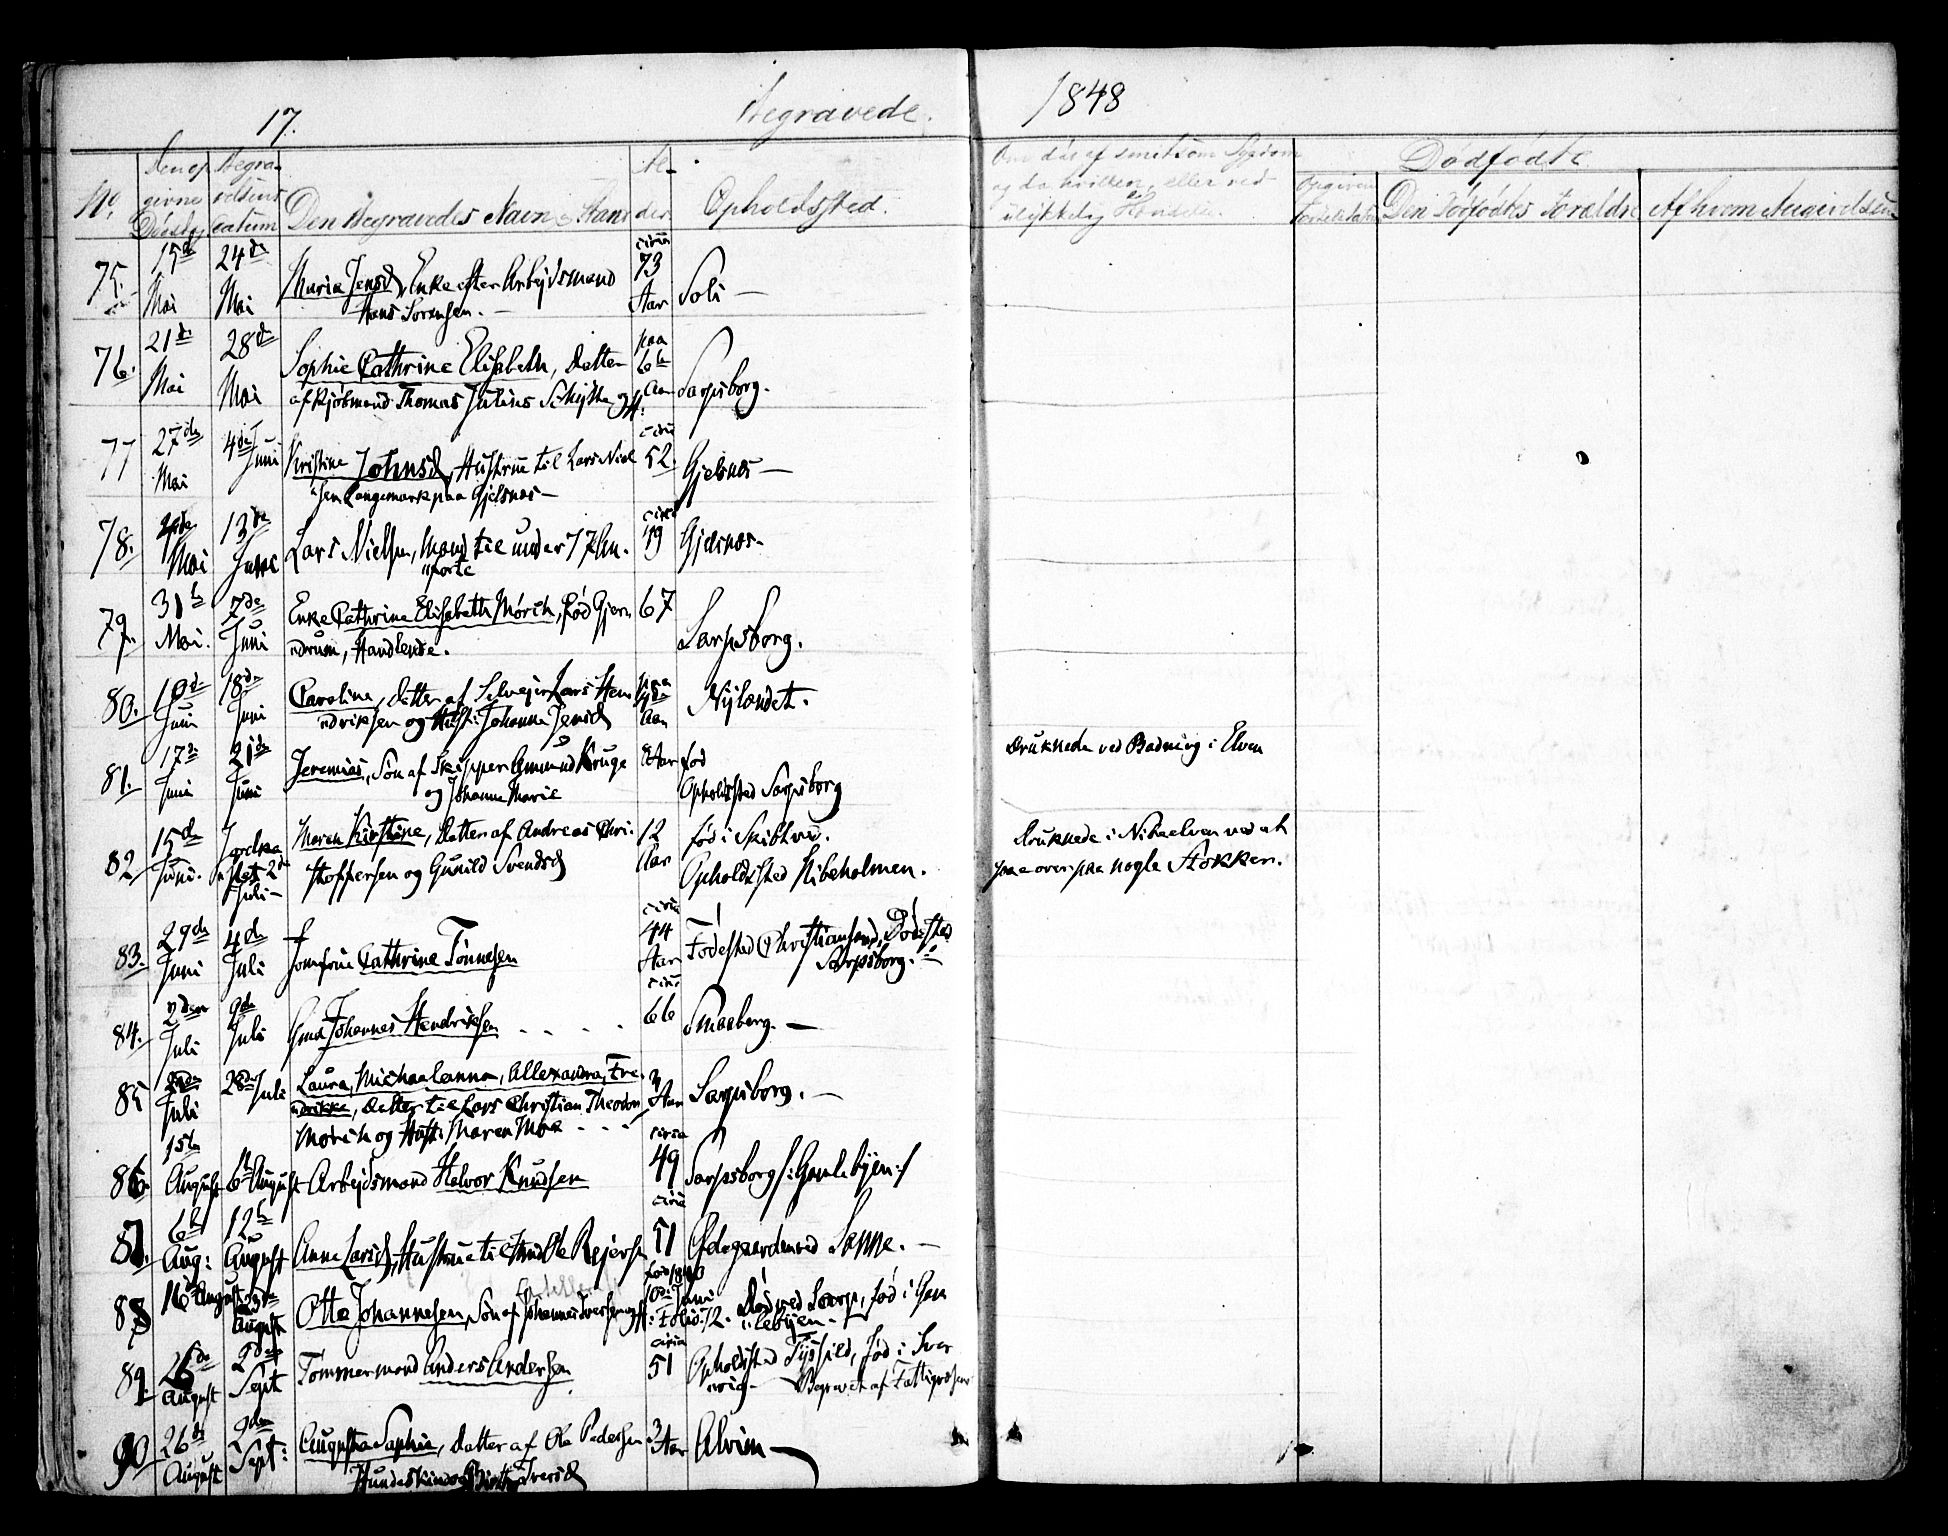 17.
Begravede.
1848
No.
Den op
givne
Dødsdag
Begra-
velsens
Datum
Den Begravedes Navn & Stand
Al-
der
Opholdssted.
Om død af smitsom Sygdom
og da hvilken, eller ved
ulykkelig Hændelse.
Dødfødte
Den Dødfødtes Forældre
Af hvem
75.
15de
Mai
24de
Mai
Maria Jensd, Enke efter Arbejdsmand
Hans Sørensen. -
circa
73
Aar
Soli -
76.
21de
Mai
28de
Mai
Sophie Cathrine Elisabeth, Datter
af Kjøbmand Thomas Julius
paa
6te
Aar
Sarpsborg.
77
27de
Mai
4de Juni
Kirstine Johnsd, Hustrue til Lars Niel
sen Langemark paa Gjelsnes -
circa
52.
Gjelsnes -
78.
Mai
13de
Juni
Lars Nielsen, Mand til under 77
circa
49
Gjelsnes -
79.
31te
Mai.
7de
Juni
Enke Cathrine Elisabeth Mørch, fød Gjern
drum, Handlende.
67
Sarpsborg.
80.
10de
Juni
18de
Juni
Caroline, Datter af Selvejer Lars Hen
driksen og Hust: Johanne Jensd
paa
Aar
Nylandet.
81.
17de
Juni
21de
Juni
Jeremias, Søn af Skipper Amund Kruge
og Johanne Marie
8 Aar
fød
Opholdssted Sarpsborg
Druknede ved Badning i Elven
82
15de
Juni.
Jordka
stet 2de
Juli -
Maren Kirstine, Datter af Andreas Chri-
stoffersen og Gunild Svendsd
12
Aar
fød i Skibtved.
Opholdssted Kibeholmen.
Druknede i Nitaelven ved at
gaae over paa nogle Stokker.
83.
29de
Juni
4de
Juli
Jomfrue Cathrine Tønnesen
circa
44
Aar
Fødested Christiansand, Dødssted
Sarpsborg. -
84.
2den
Juli
9de
Juli
Gmd Johannes Hendriksen
circa
66
Smaaberg. -
85
Juli
28de Juli
Laura, Michaelanna, Allexandra, Fre-
drikke, Datter til Lars Christian Theodor
Mørch og Hust: Maren Moe - - -
3
Aar
Sarpsborg. -
86.
15te
August
August
Arbejdsmand Halvor Knudsen
circa
49
Sarpsborg /: Gamlebyen :/
87.
6te
Aug:
12te
August
Anne Larsd, Hustrue til Ole Rejersen
circa
51
Ødegaarden ved Sanne. -
88
16 August
August
Otto Johannesen, Søn af Johannes Iversen og H:
Juni
Folio: 12.
Død ved Sarp, fød i Gam
lebyen -
89.
26de
August
2den
Sept
Tømmermand Anders Andersen
circa
51
Opholdssted Tyssild, fød i Sver
rig - Begravet af Fattigvæsen
90
26de
August
9de
Sept:
Augusta Sophie, Datter af Ole Pedersen
Hundeskind og Iversd
3 Aar
Alvim -